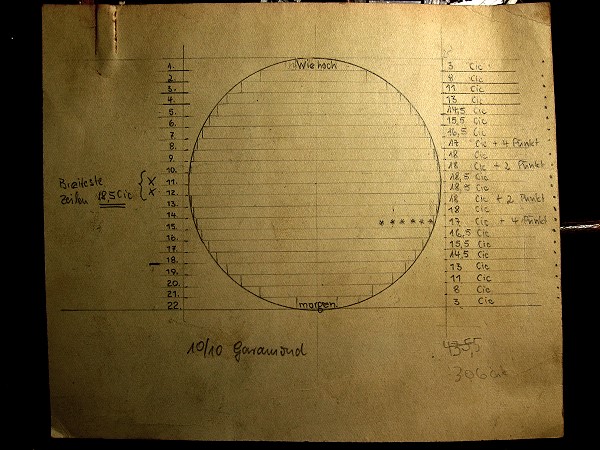 1. Wie hoch 3 Cic
2. 8 Cic
3. 11 Cic
4. 13 Cic
5. 14,5 Cic
6. 15,5 Cic
7. 16,5 Cic
8. 17 Cic + 4 Punkt
9. 18 Cic
10. 18 Cic + 2 Punkt
Breiteste x 11. 18,5 Cic
Zeilen 18,5 Cic x 12. 18,5 Cic
13. 18 Cic + 2 Punkt
14. 18 Cic
15. * * * * * * 17 Cic + 4 Punkt
16. 16,5 Cic
17. 15,5 Cic
18. 14,5 Cic
19. 13 Cic
20. 11 Cic
21. 8 Cic
22. morgen 3 Cic
10/10 Garamond
306 Cic